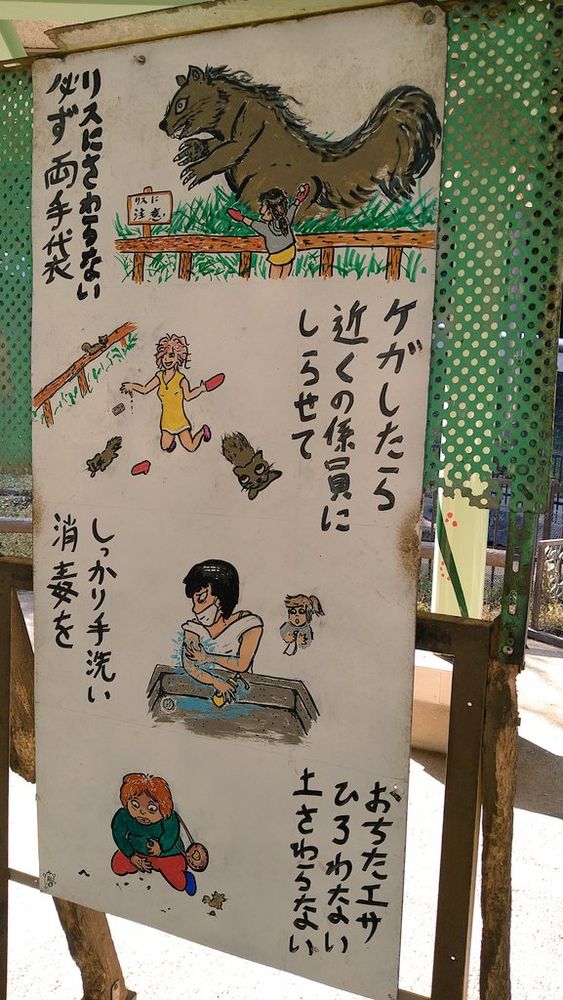 リスにさわらない
必ず両手代衣
リスに
注意
ケガしたら
近くの係員に
しらせて
しっかり手洗い
消毒を
おちたエサ
ひろわない
土さわらない